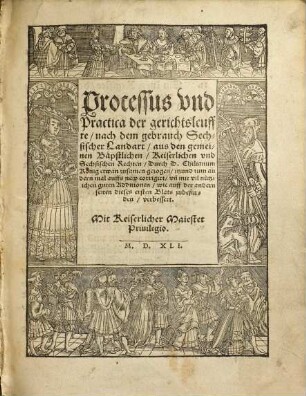 Processus vnd
Practica der gerichtsleuff
te / nach dem gebrauch Sech-
sischer Landart / aus den gemei-
nen Bäpstlichen / Keiserlichen vnd
Sechsischen Rechten / Durch D. Chilianum
König etwan zusamen gezogen / itzund zum an
dern mal auffs new corrigirt / vñ mit vil nütz
lichen guten Additionen / wie auff der andern
seiten dieses ersten Blats zubefin-
den / verbessert.
Mit Keiserlicher Maiestet
Priuilegio.
M. D. XLI.